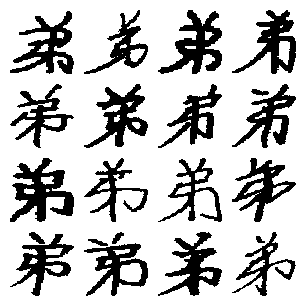 弟弟弟弟
弟弟弟弟
弟弟弟弟
弟弟弟弟